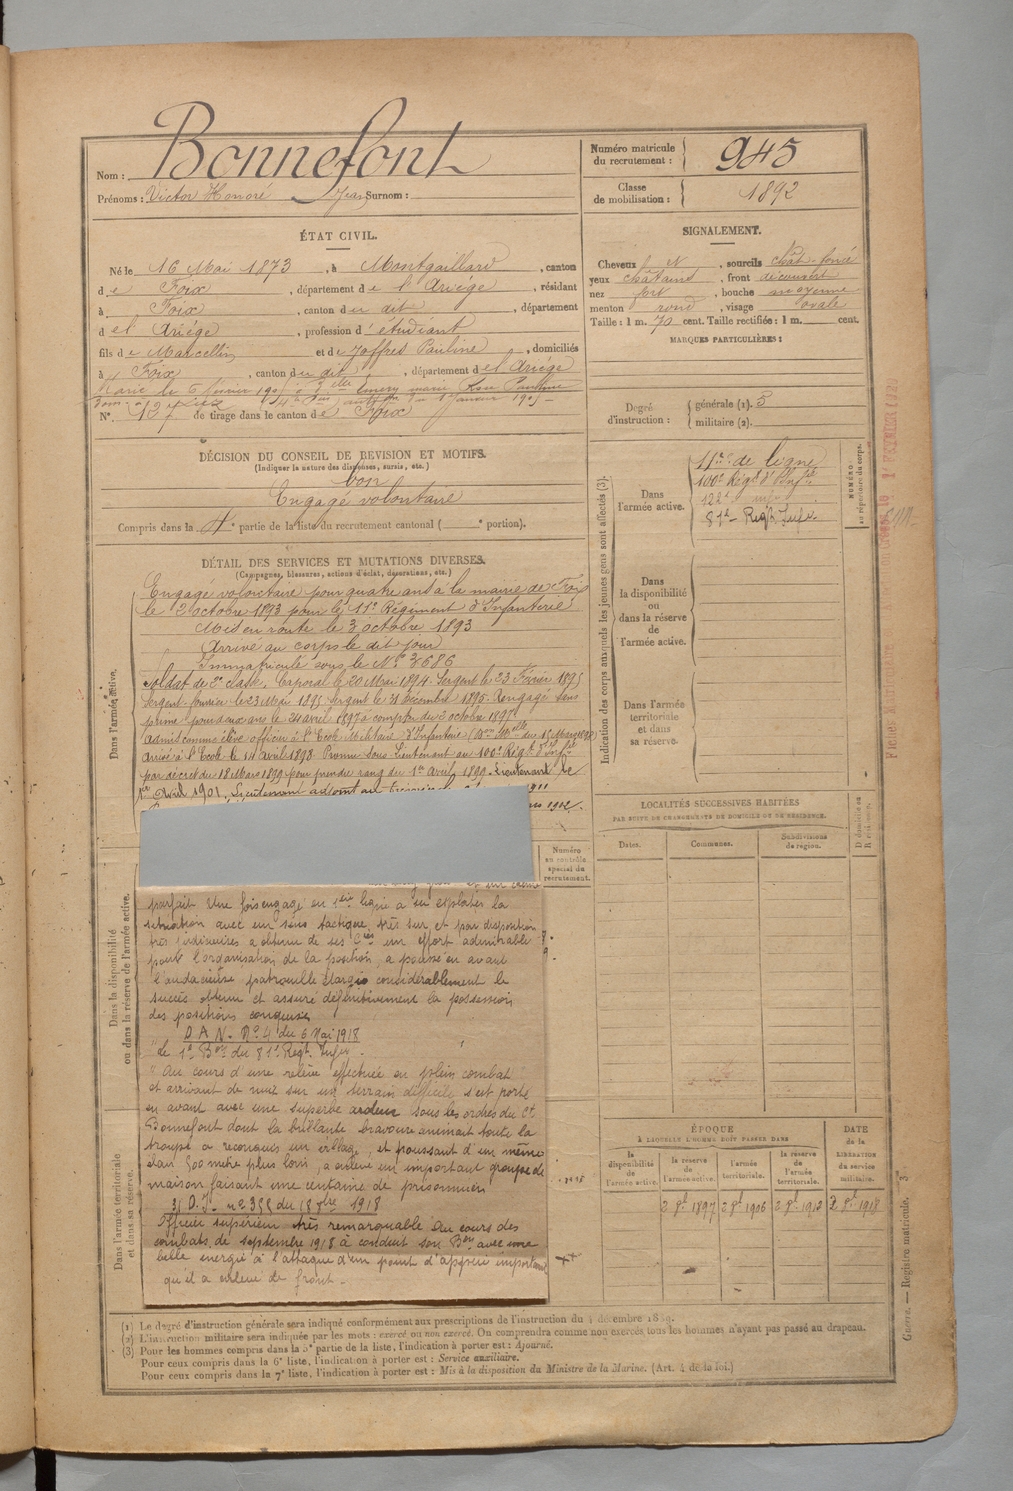 Nom : Bonnefont
Prénoms : Victor Honoré Jean Surnom :
Numéro matricule du recrutement : 945
Classe de mobilisation : 1892
ÉTAT CIVIL.
Né le 16 Mai 1873, à Montgaillard, canton
de Foix, département de l'Ariége, résidant
à Foix, canton du dit, département
de l'Ariége, profession d'étudiant
fils de Marcellin et de Joffres Pauline, domiciliés
à Foix, canton du dit, département de l'Ariége
N° 137 de tirage dans le canton de Foix
SIGNALEMENT.
Cheveux et, sourcils chât. foncé
yeux châtains, front découvert
nez fort, bouche moyenne
menton rond, visage ovale
Taille : 1 m. 70 cent. Taille rectifiée : 1 m. cent.
MARQUES PARTICULIÈRES :
Degré d'instruction : générale (1). 3
militaire (2).
DÉCISION DU CONSEIL DE REVISION ET MOTIFS.
(Indiquer la nature des dispenses, sursis, etc.)
bon
Engagé volontaire
Compris dans la 4e partie de la liste du recrutement cantonal ( e portion).
DÉTAIL DES SERVICES ET MUTATIONS DIVERSES.
(Campagnes, blessures, actions d'éclat, décorations, etc.)
Dans l'armée active.
Engagé volontaire pour quatre ans à la mairie de Foix
le 2 octobre 1893 pour le 11e Régiment d'Infanterie
Mis en route le 3 octobre 1893
Arrivé au corps le dit jour
Immatriculé sous le N° 3686
Soldat de 2e classe. Caporal le 20 Mai 1894. Sergent le 23 Février 1895
Sergent fourrier le 23 Mai 1895 Sergent le 21 Décembre 1895. Rengagé sans
prime pour deux ans le 24 avril 1897 à compter du 2 octobre 1897
Admis comme élève officier à l'Ecole Militaire d'Infanterie
Arrivé à l'Ecole le 14 Avril 1898 Promu Sous Lieutenant au 100e Régt d'Infie
par décret du 18 Mars 1899 pour prendre rang du 1er Avril 1899. Lieutenant le
1er Avril 1901. Lieutenant adjoint au
1902.
Indication des corps auxquels les jeunes gens sont affectés (3).
Dans l'armée active.
11e de ligne
100e Régt d'Infie
122e infie
81e Regt Infie.
NUMÉRO au répertoire du corps.
Dans la disponibilité ou dans la réserve de l'armée active.
Dans l'armée territoriale et dans sa réserve.
LOCALITÉS SUCCESSIVES HABITÉES
PAR SUITE DE CHANGEMENTS DE DOMICILE OU DE RÉSIDENCE.
Dates. Communes. Subdivisions de région.
Numéro au contrôle spécial du recrutement.
Dans la disponibilité ou dans la réserve de l'armée active.
parfait. Une fois engagé en 1ère ligne a su exploiter la
situation avec un sens tactique très sur et par disposition
très judicieuses a obtenu de ses Cies un effort admirable
pour l'organisation de la position, a poussé en avant
l'audacieuse patrouille élargie considérablement le
succès obtenu et assuré définitivement la possession
des positions conquises
D A N. N° 4 du 6 Mai 1918
le 1er Bon du 81e Régt. Infie.
" Au cours d'une relève effectuée en plein combat
et arrivant de nuit sur un terrain difficile s'est porté
en avant avec une superbe ardeur sous les ordres du Ct
Bonnefont dont la brillante bravoure animait toute la
troupe a reconquis un village, et poussant d'un même
élan 500 mètre plus loin, a enlevé un important groupe de
maison faisant une centaine de prisonniers
31 D.I. n° 355 du 18 8bre 1918
Officier supérieur très remarquable Au cours des
combats de septembre 1918 à conduit son Bon avec une
belle energie à l'attaque d'un point d'appui important
qu'il a enlevé de front.
Dans l'armée territoriale et dans sa réserve.
ÉPOQUE
À LAQUELLE L'HOMME DOIT PASSER DANS
la disponibilité de l'armée active. la réserve de l'armée active. l'armée territoriale. la réserve de l'armée territoriale.
DATE de la LIBÉRATION du service militaire.
2 8b 1897 2 8b 1906 2 8b 1912 2 8b 1918
(1) Le degré d'instruction générale sera indiqué conformément aux prescriptions de l'instruction du 4 décembre 1889.
(2) L'instruction militaire sera indiquée par les mots : exercé ou non exercé. On comprendra comme non exercés tous les hommes n'ayant pas passé au drapeau.
(3) Pour les hommes compris dans la 5e partie de la liste, l'indication à porter est : Ajourné.
Pour ceux compris dans la 6e liste, l'indication à porter est : Service auxiliaire.
Pour ceux compris dans la 7e liste, l'indication à porter est : Mis à la disposition du Ministre de la Marine. (Art. 4 de la loi.)
Guerre. — Registre matricule. 3